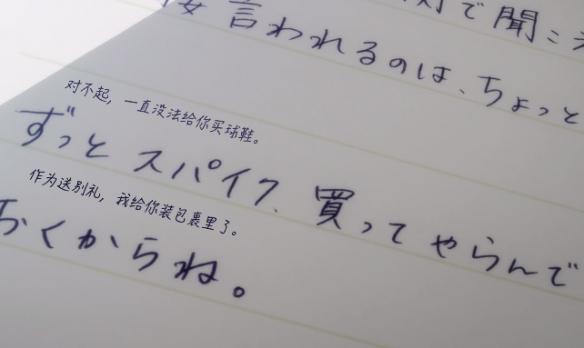 で聞こえ
言われるのは、ちょっと
对不起，一直没法给你买球鞋。
ずっと スパイク、買ってやらんで
作为送别礼，我给你装包裹里了。
おくからね。